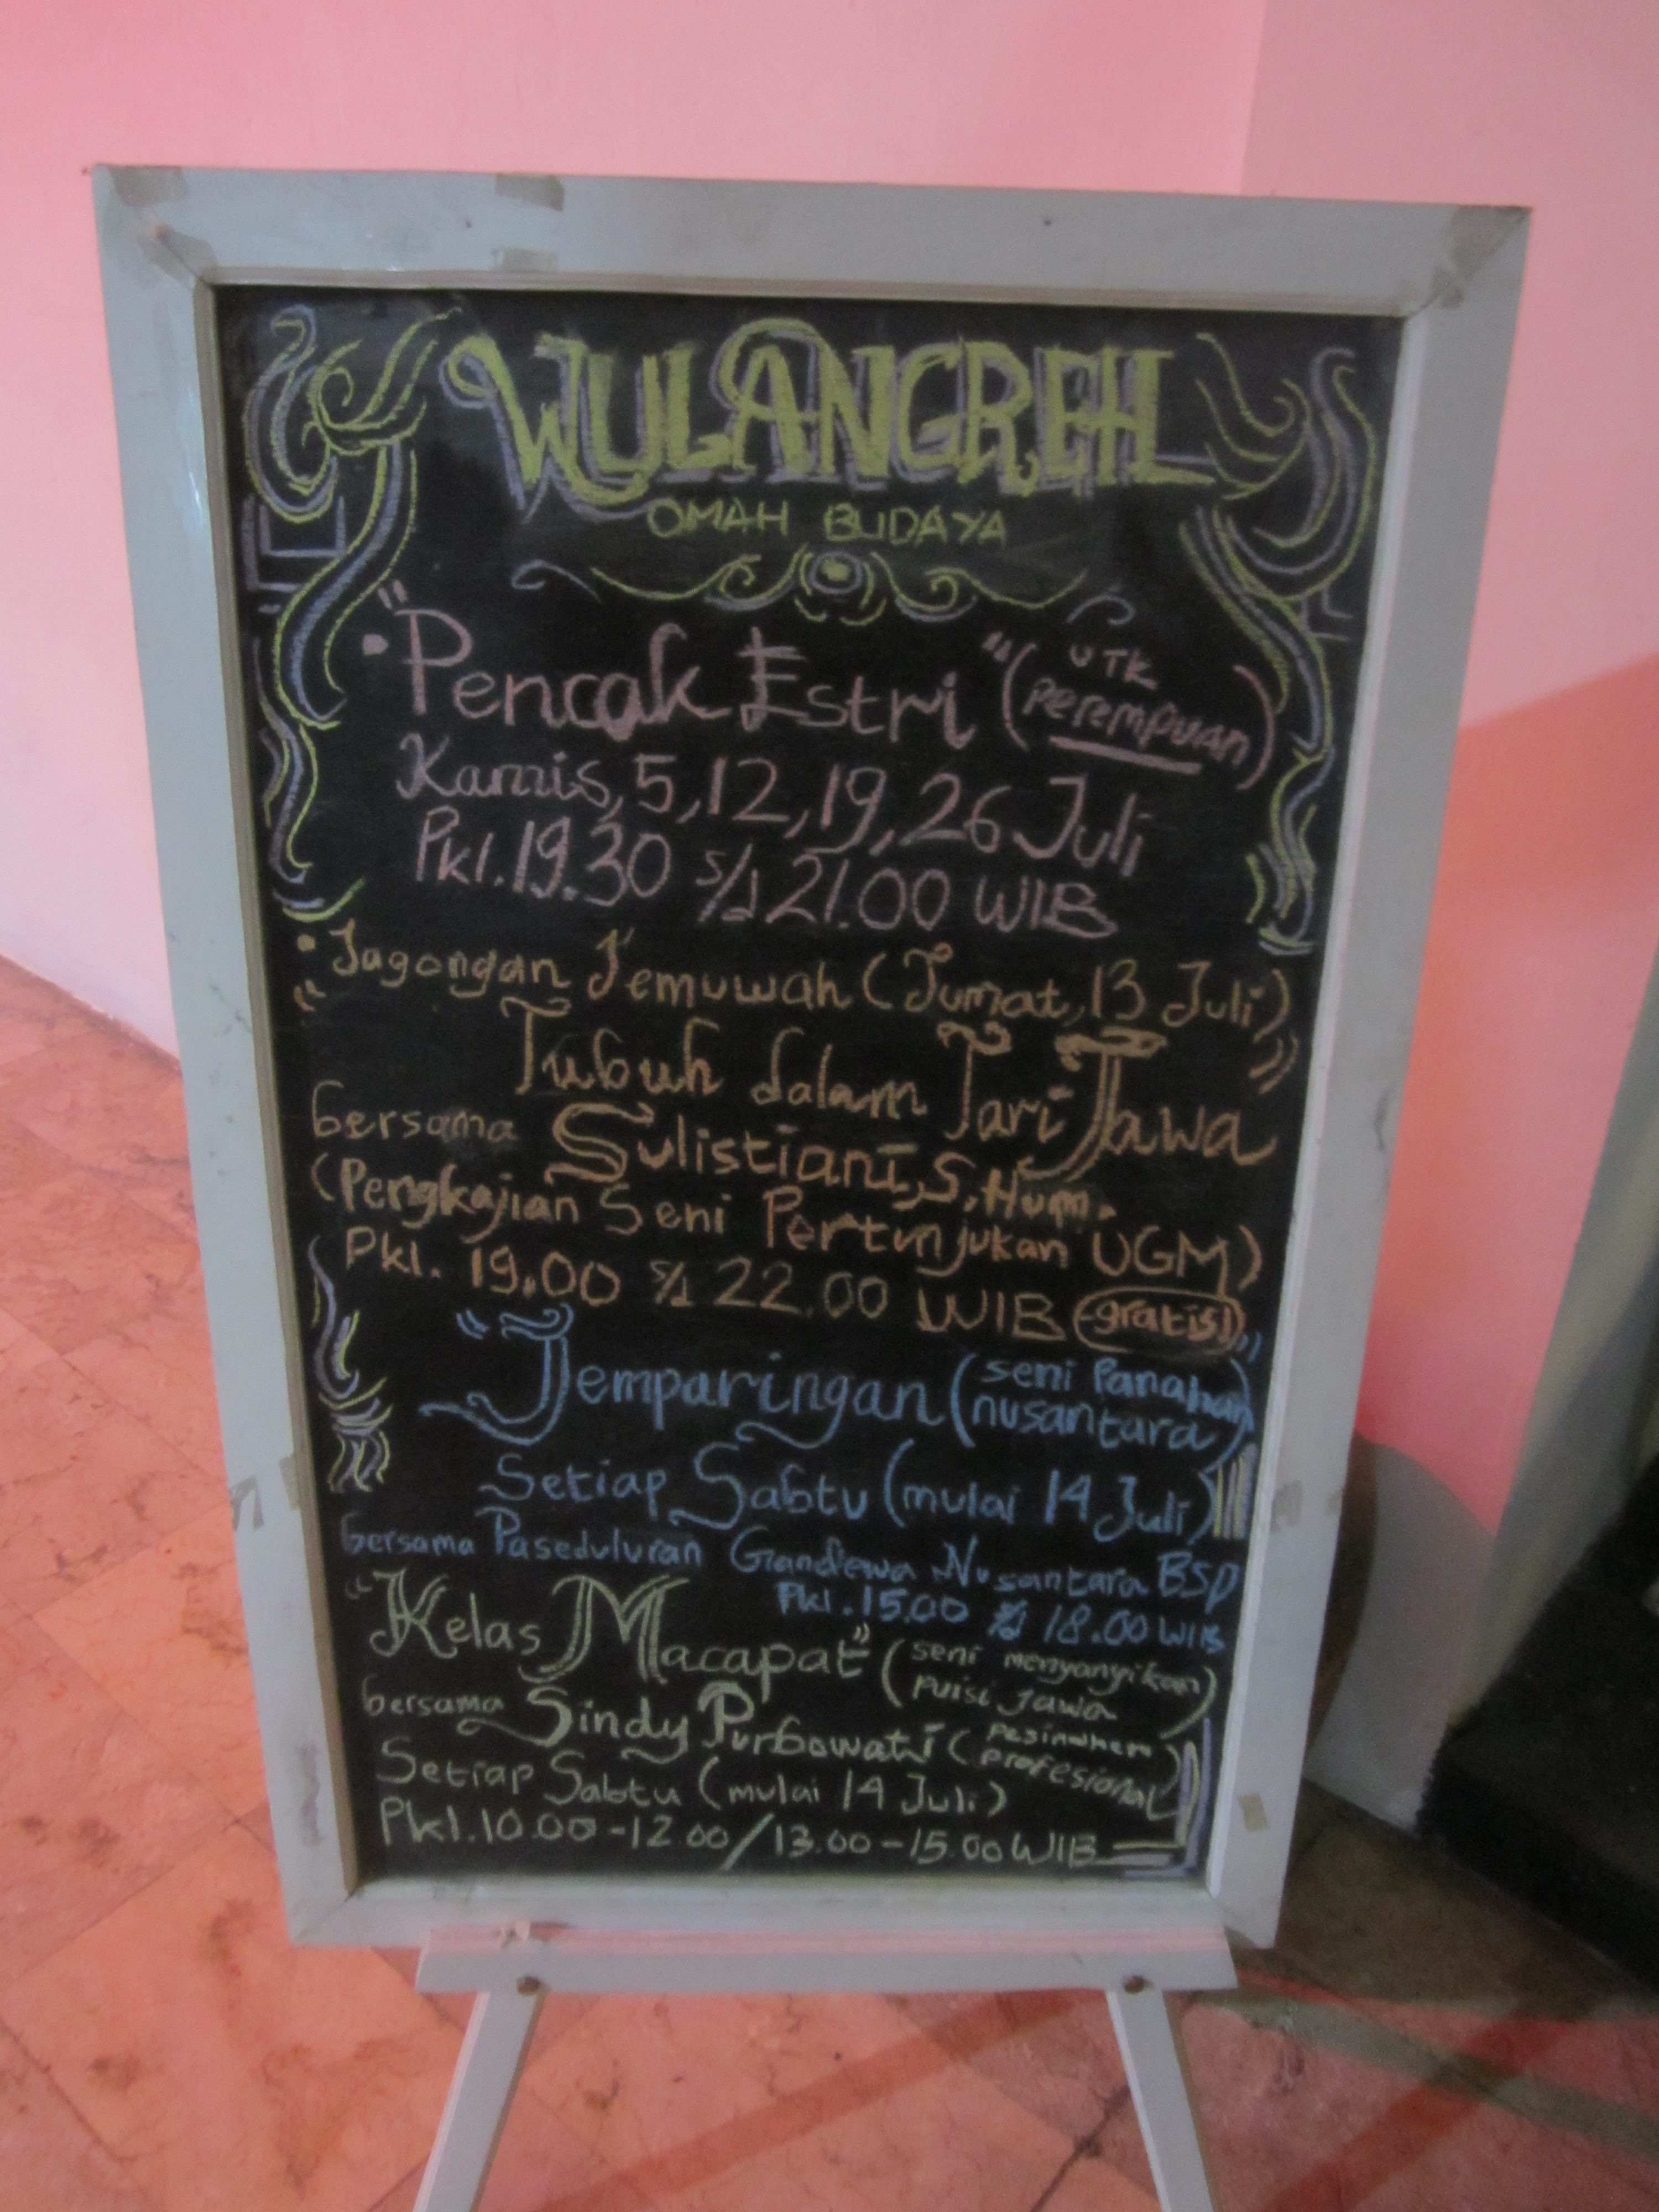 WULANGREH
OMAH BUDAYA
• "Pencak Estri" (utk
perempuan)
Kamis, 5, 12, 19, 26 Juli
Pkl. 19.30 s/d 21.00 WIB
• Jagongan Jemuwah (Jumat, 13 Juli)
"Tubuh dalam Tari Jawa"
bersama Sulistiani, S.Hum.
(Pengkajian Seni Pertunjukan UGM)
Pkl. 19.00 s/d 22.00 WIB -gratis!
"Jemparingan (seni Panahan
nusantara)"
Setiap Sabtu (mulai 14 Juli)
bersama Paseduluran Gandewa Nusantara BSP
Pkl. 15.00 s/d 18.00 WIB
"Kelas Macapat" (seni menyanyikan
puisi Jawa)
bersama Sindy Purbowati (Pesindhen
profesional)
Setiap Sabtu (mulai 14 Juli)
Pkl. 10.00-12.00/13.00-15.00 WIB